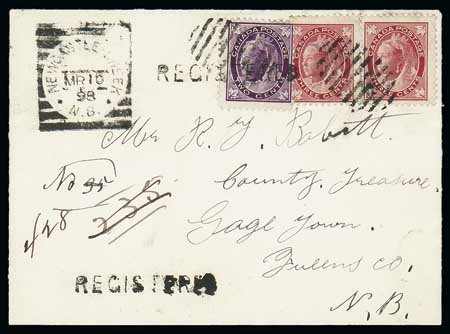 NEWCASTLE CREEK
MR 16
98
N.B.
REGISTERED
CANADA POSTAGE CANADA POSTAGE CANADA POSTAGE
TWO CENTS THREE CENTS
Mr R. Y. Babitt.
County Treasure.
Gage Town.
Queens Co.
N.B.
No 95
235
428
REGISTERED